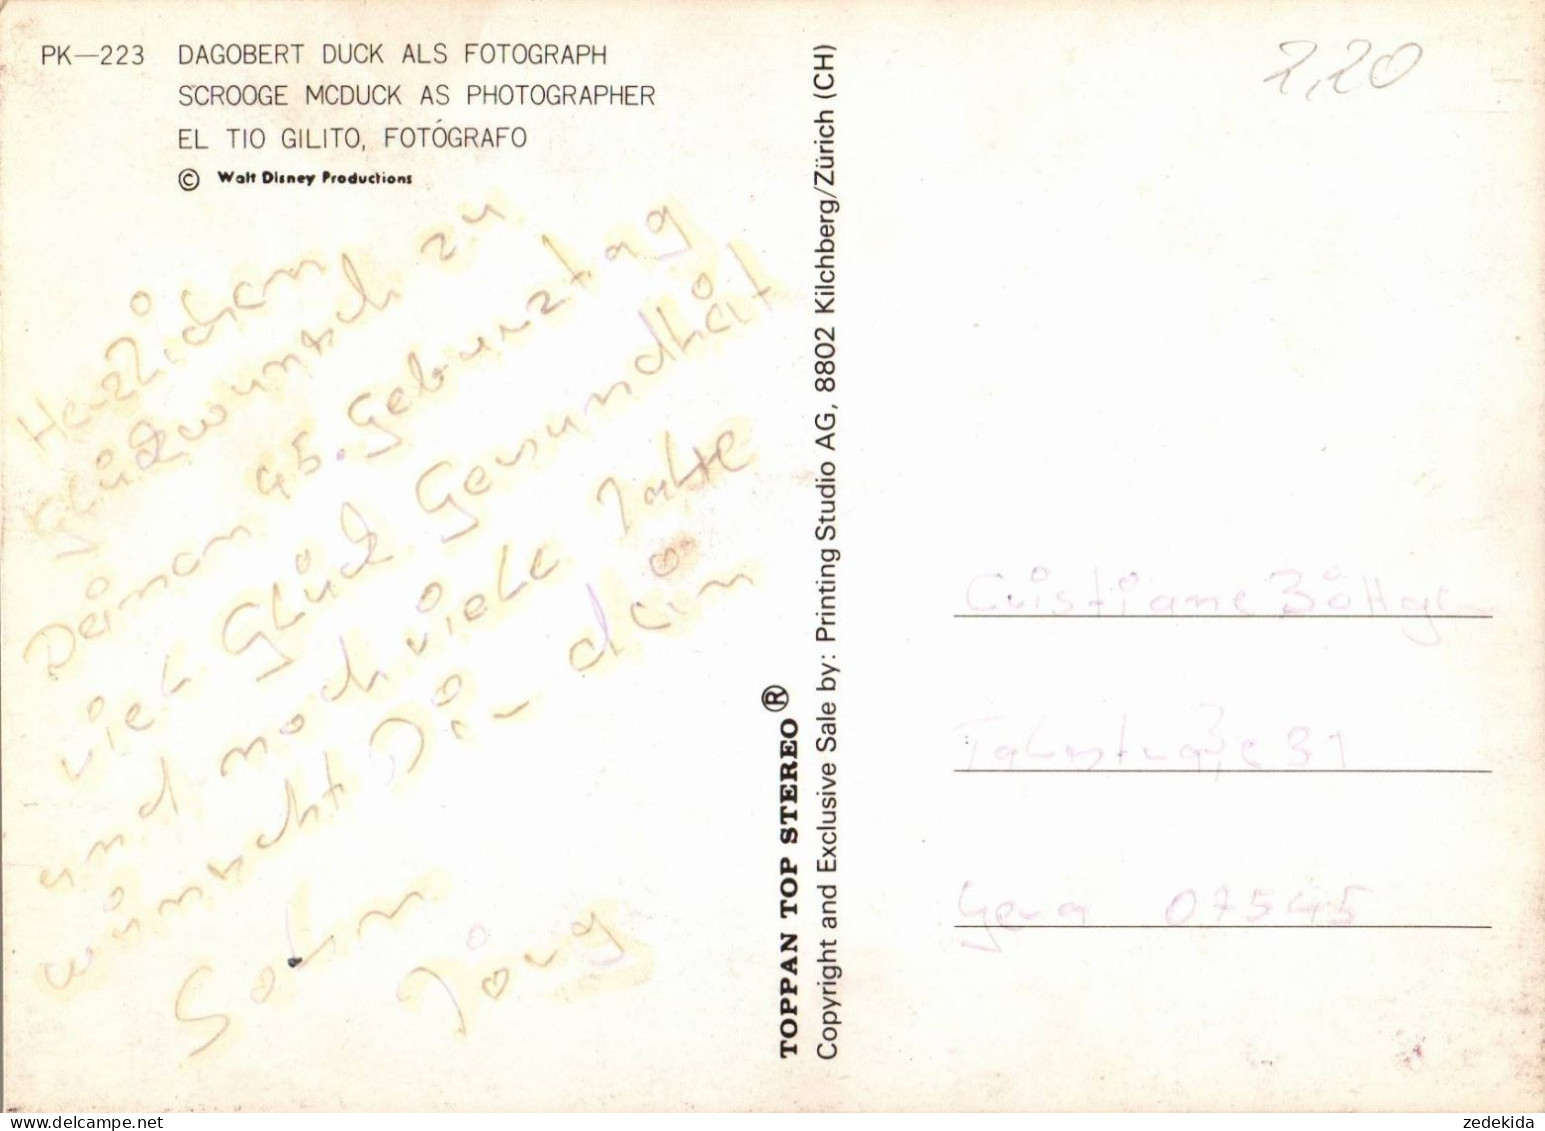 PK—223 DAGOBERT DUCK ALS FOTOGRAPH
SCROOGE MCDUCK AS PHOTOGRAPHER
EL TIO GILITO, FOTÓGRAFO
© Walt Disney Productions
2,20
Herzlichen
Glückwunsch zu
Deinen 45. Geburztag
viel Glück Gesundheit
und noch viele Jahre
wünscht Dir dein
Sohn
Jörg
TOPPAN TOP STEREO®
Copyright and Exclusive Sale by: Printing Studio AG, 8802 Kilchberg/Zürich (CH)
Cristiane Böttger
Talstraße 31
Gera 07545
delcampe.net
zedekida